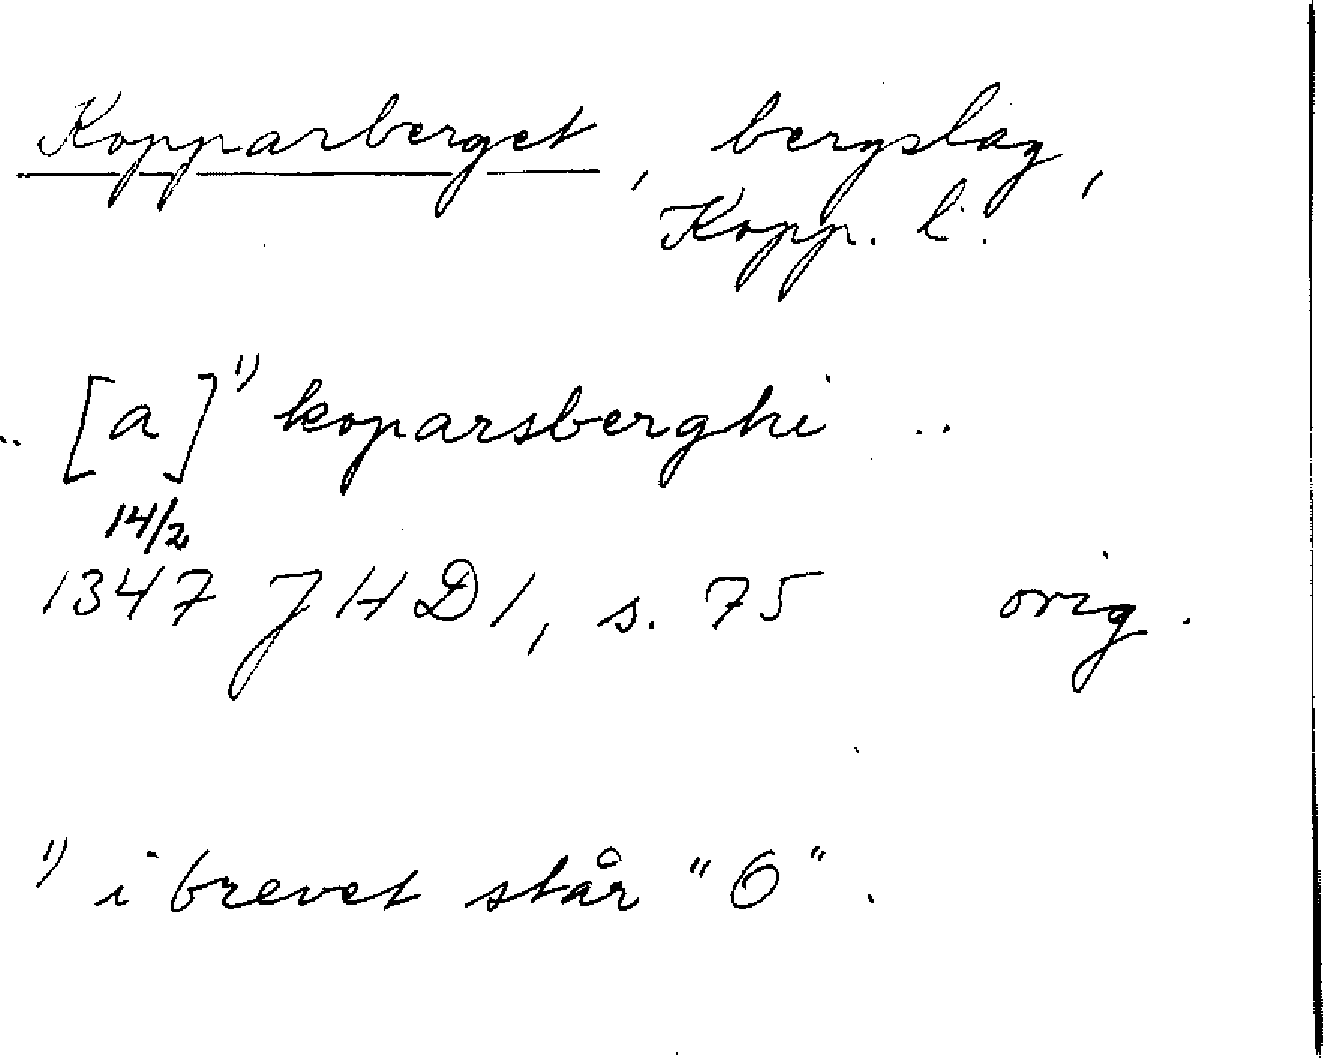 Kopparberget, bergslag,
Kopp. l.
.. [a]¹⁾ koparsberghi ..
14/2
1347 JHD 1, s. 75 orig.
¹⁾ i brevet står "O".